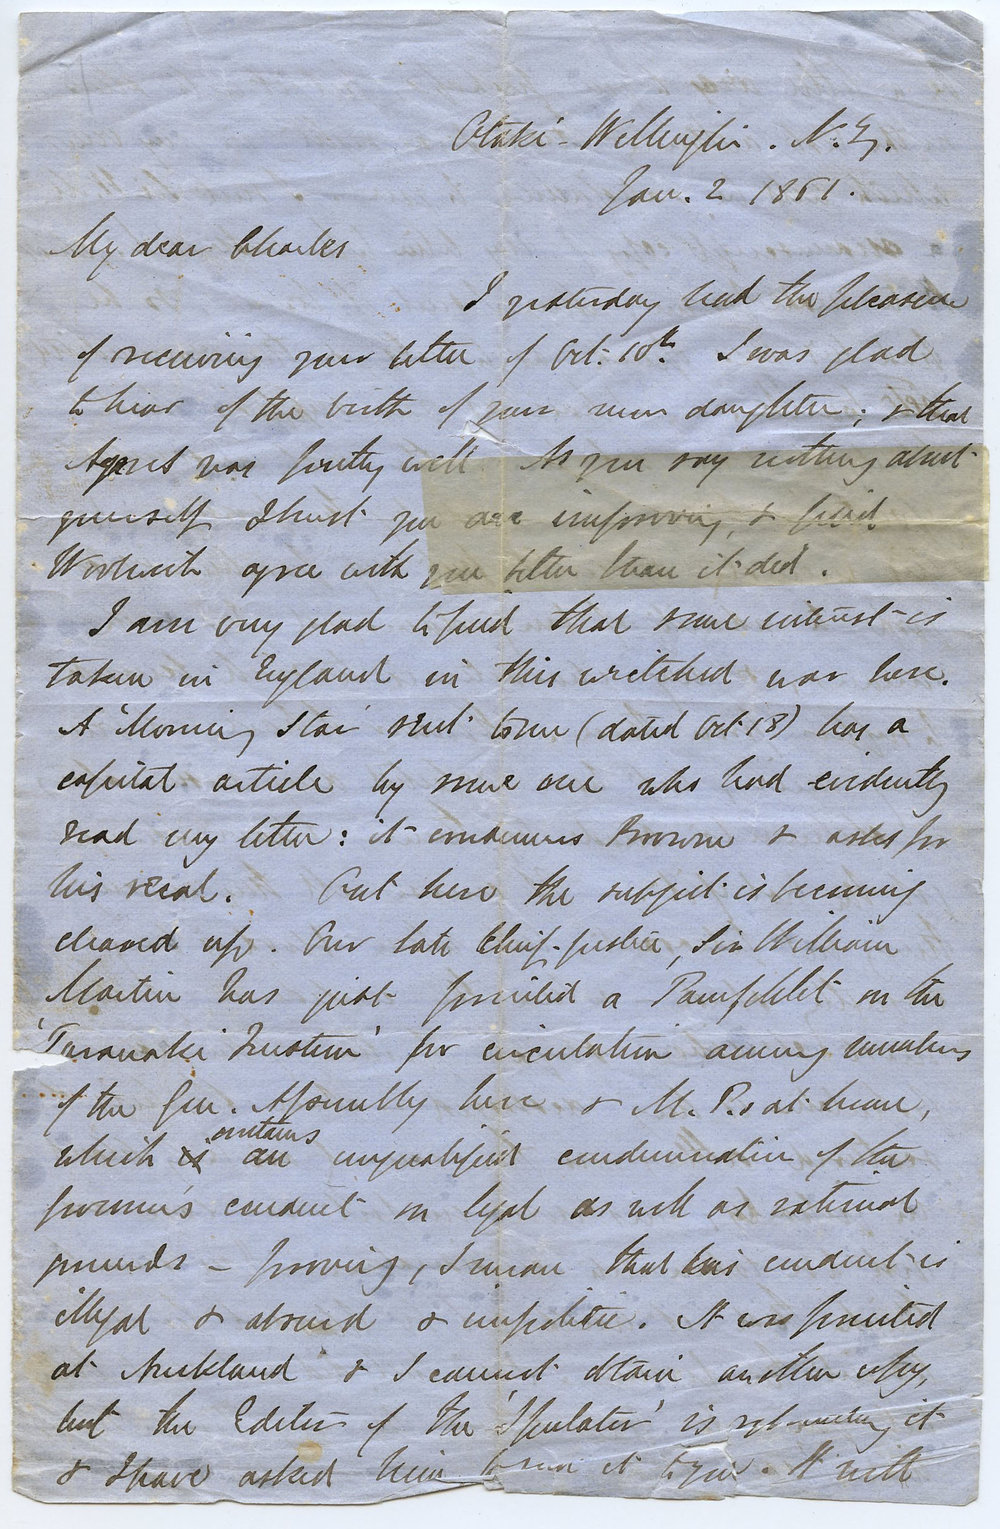 Otaki - Wellington. N.Z.
Jan. 2 1861.
My dear Charles
I yesterday had the pleasure
of receiving your letter of Oct. 10th. I was glad
to hear of the birth of your new daughter; & that
Agnes was pretty well. As you say nothing about
yourself I trust you are improving, & find
Woolwich agree with you better than it did.
I am very glad to find that some interest is
taken in England in this wretched war here.
A 'Morning Star' sent to me (dated Oct 18) has a
capital article by some one who had evidently
read my letter: it condemns Browne & asks for
his recal. Out here the subject is becoming
cleared up. Our late Chief-Justice, Sir William
Martin has just printed a Pamphlet on the
'Taranaki Question' for circulation among members
of the Gen. Assembly here & M.P.s at home,
which is contains an unqualified condemnation of the
Governor's conduct on legal as well as rational
grounds - proving, I mean that his conduct is
illegal & absurd & impolitic. It was printed
at Auckland & I cannot obtain another copy,
but the Editor of the 'Spectator' is reprinting it
& I have asked him to send it to you. It will